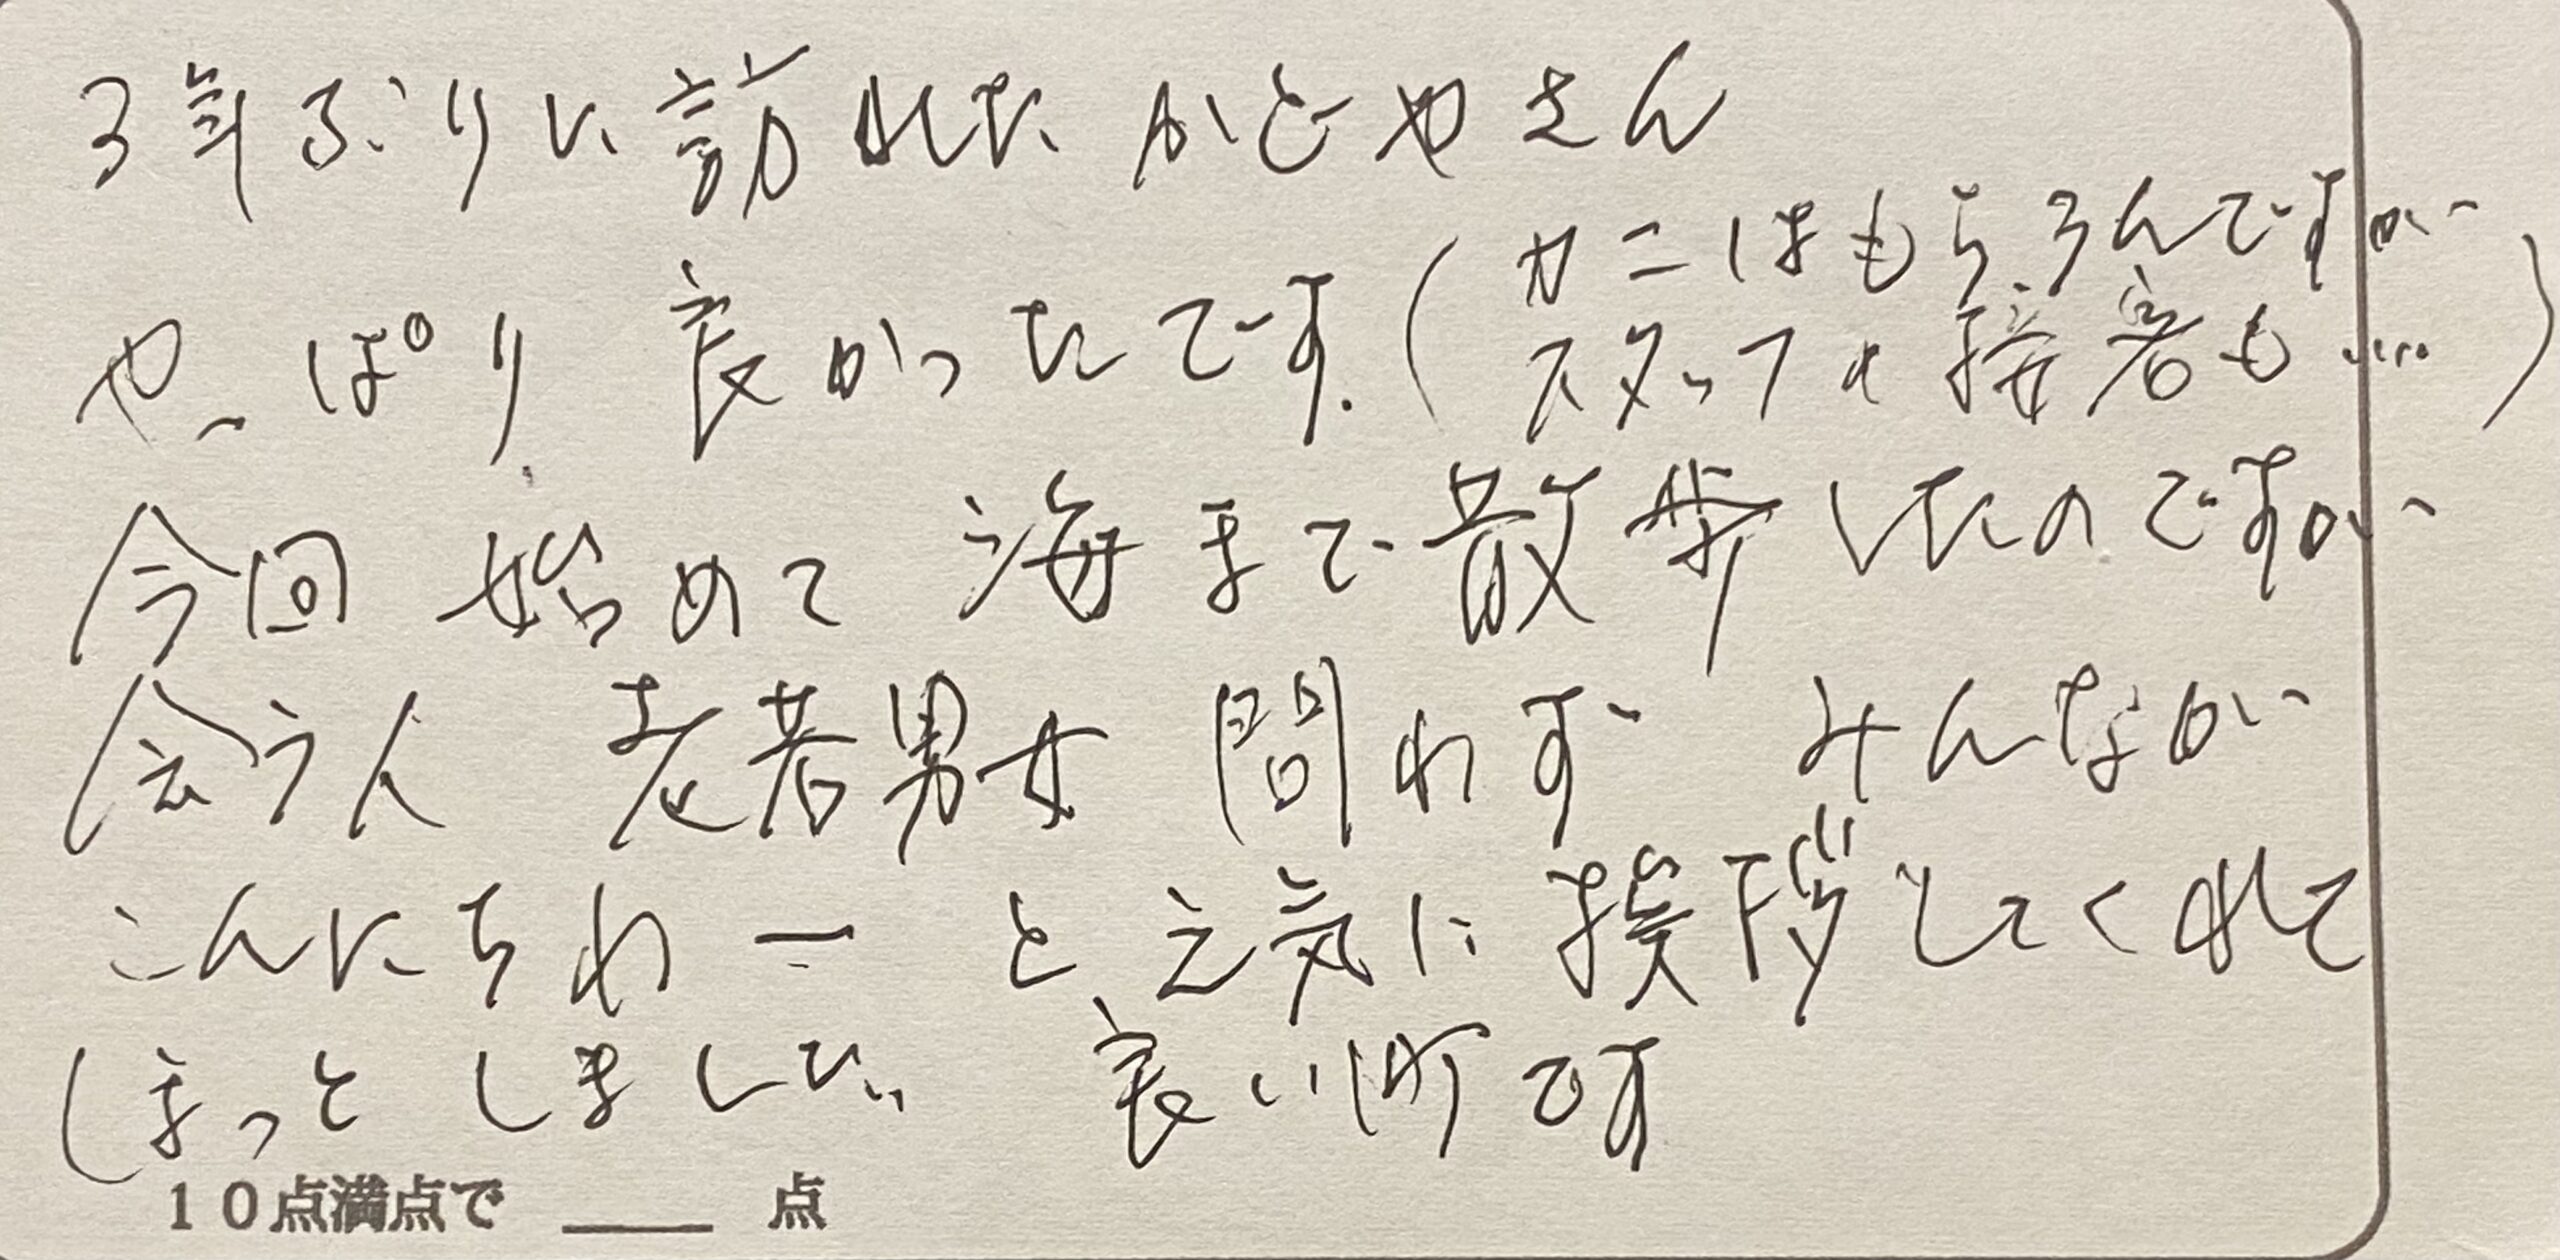 3年ぶりに訪れた かどやさん
やっぱり 良かったです.(カニはもちろんですが
スタッフの接客も….)
今回 始めて 海まで散歩したのですが
会う人 老若男女 問わず みんなが
こんにちわー と 元気に挨拶してくれて
ほっと しました 良い町です
10点満点で ___ 点